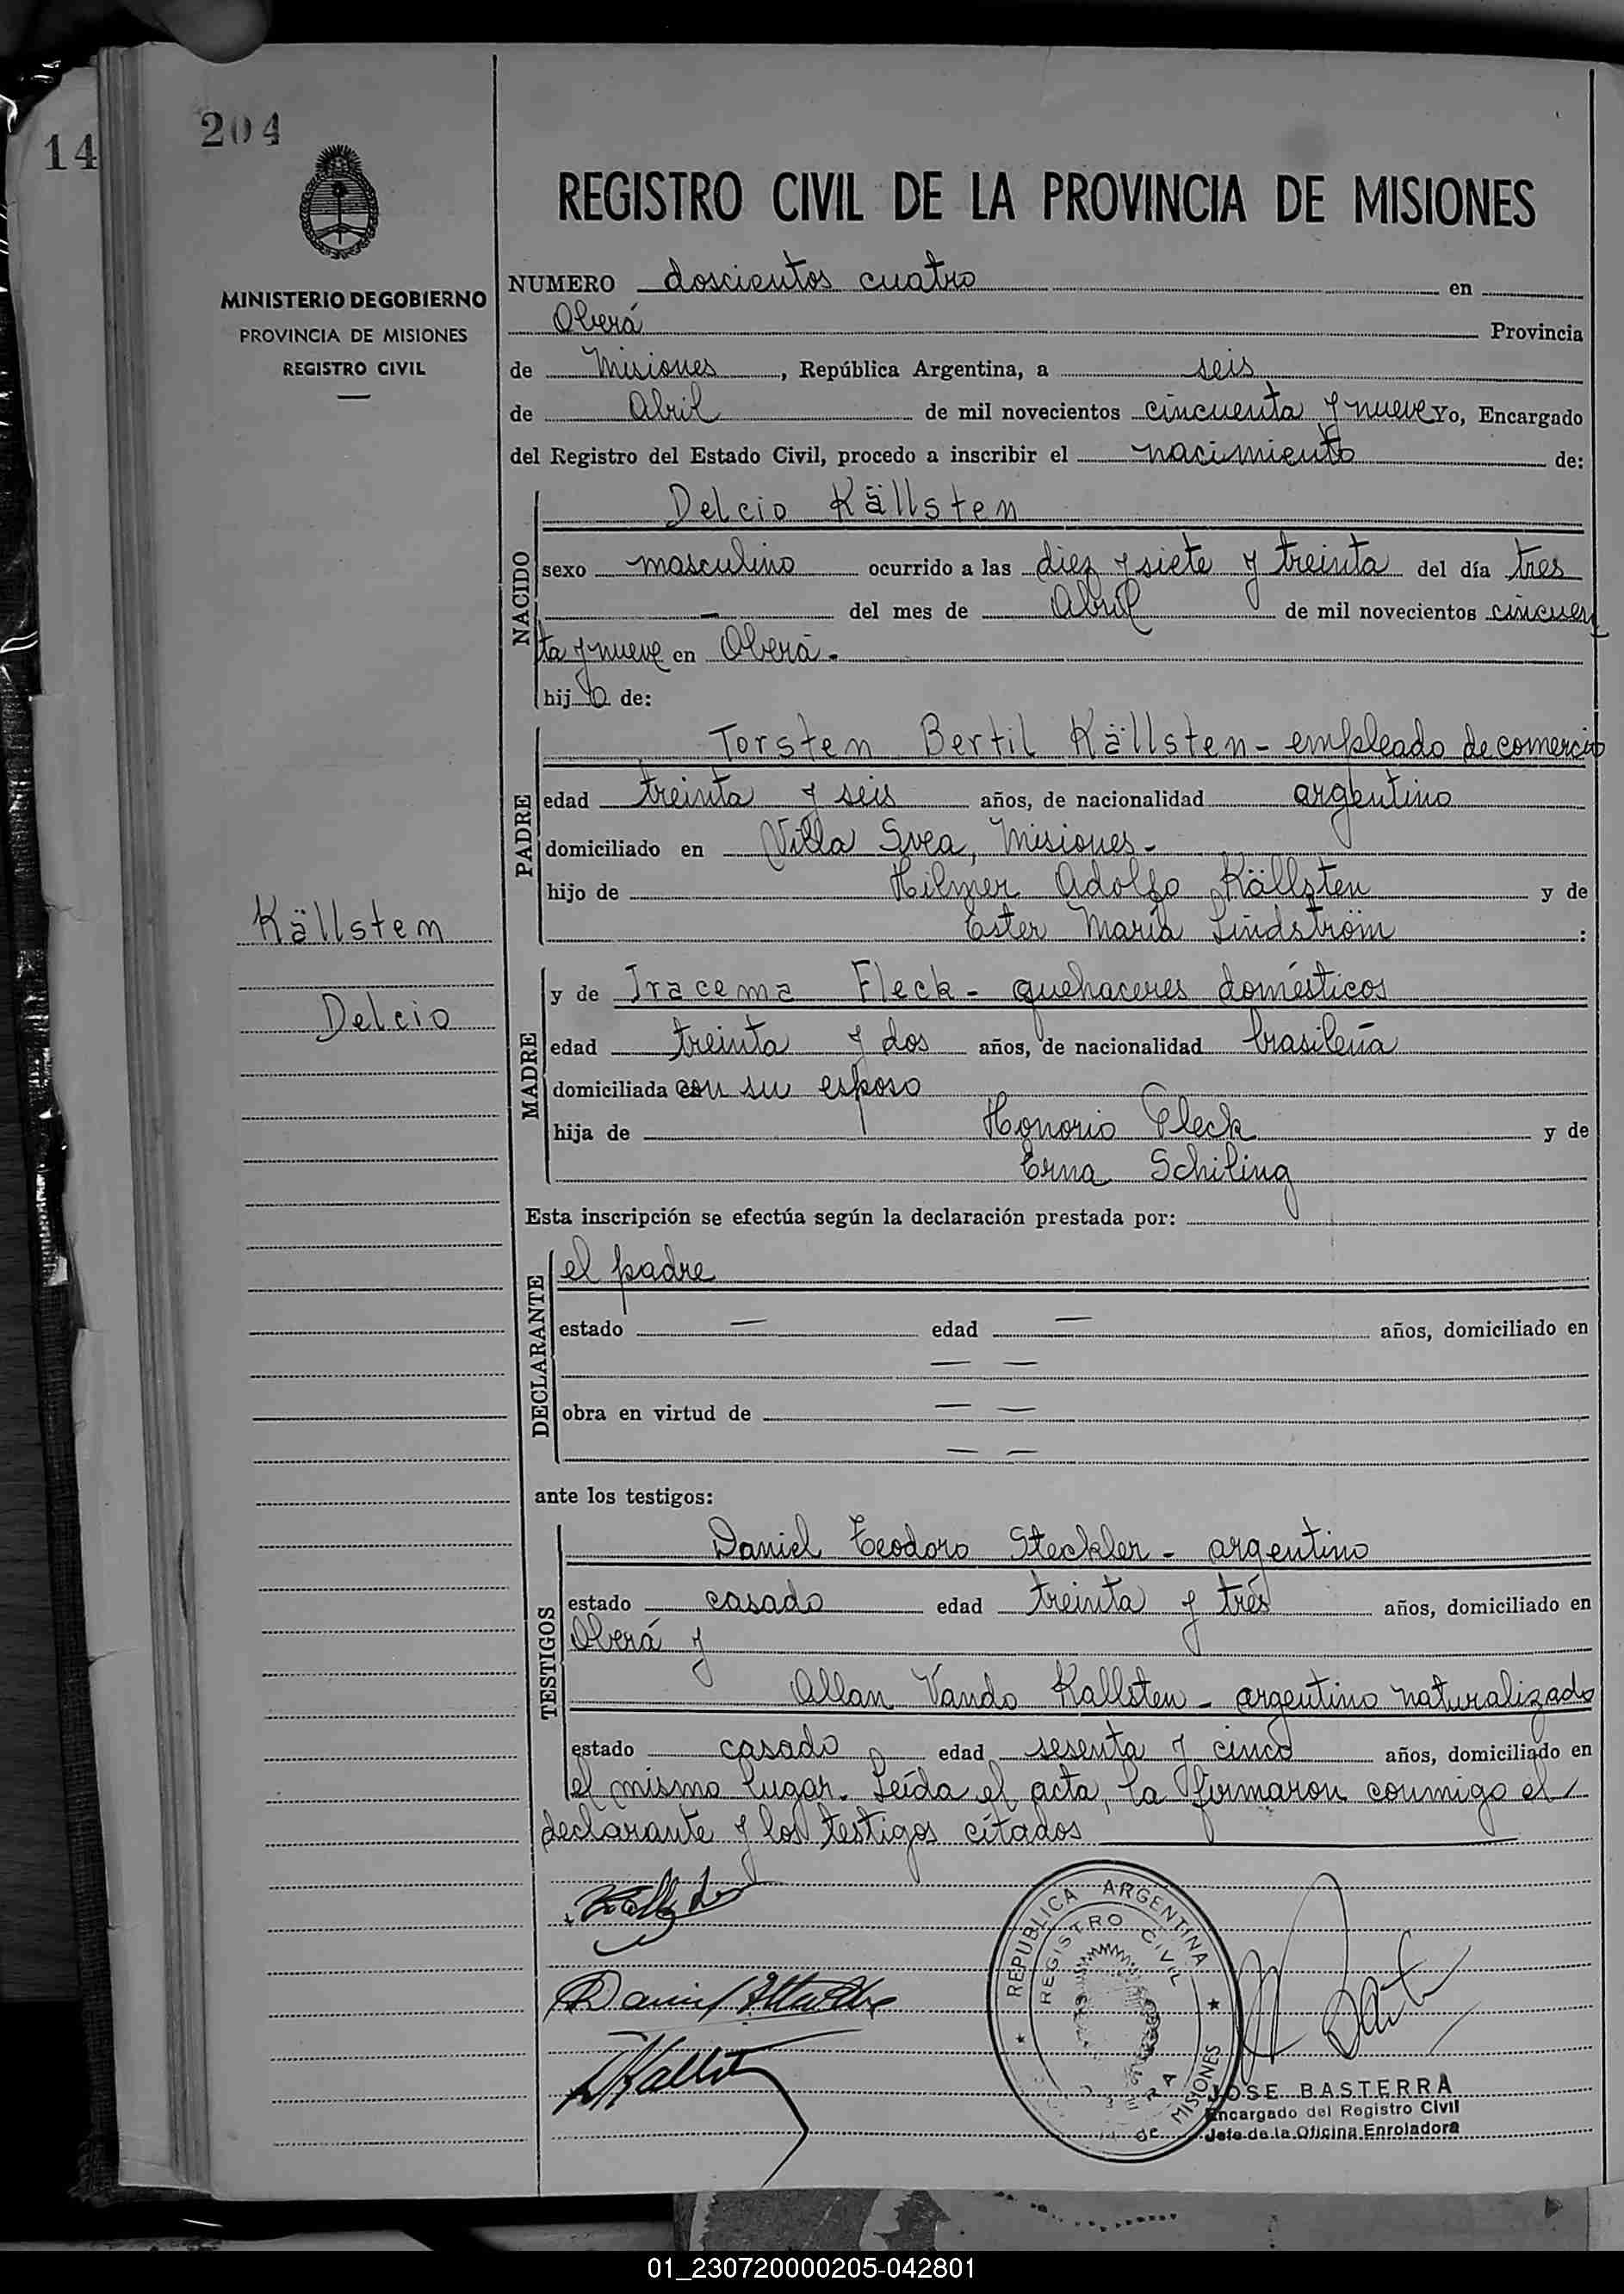 14
204
MINISTERIO DE GOBIERNO
PROVINCIA DE MISIONES
REGISTRO CIVIL
Källstem
Delcio
REGISTRO CIVIL DE LA PROVINCIA DE MISIONES
NUMERO doscientos cuatro en
Oberá Provincia
de Misiones, República Argentina, a seis
de Abril de mil novecientos cincuenta y nueve Yo, Encargado
del Registro del Estado Civil, procedo a inscribir el nacimiento de:
NACIDO
Delcio Källsten
sexo masculino ocurrido a las diez y siete y treinta del día tres
— del mes de Abril de mil novecientos cincuen
ta y nueve en Oberá.
hijo de:
PADRE
Torsten Bertil Källsten - empleado de comercio
edad treinta y seis años, de nacionalidad argentino
domiciliado en Villa Svea, Misiones.-
hijo de Hilmer Adolfo Källsten y de
Ester María Lindström :
MADRE
y de Iracema Fleck - quehaceres domésticos
edad treinta y dos años, de nacionalidad brasileña
domiciliada con su esposo
hija de Honorio Fleck y de
Erna Schiling
Esta inscripción se efectúa según la declaración prestada por:
DECLARANTE
el padre
estado — edad — años, domiciliado en
— —
obra en virtud de — —
— —
ante los testigos:
TESTIGOS
Daniel Teodoro Steckler - argentino
estado casado edad treinta y trés años, domiciliado en
Oberá y
Allan Vando Kallsten - argentino naturalizado
estado casado edad sesenta y cinco años, domiciliado en
el mismo lugar. Leída el acta, la firmaron conmigo el
declarante y los testigos citados
REPUBLICA ARGENTINA
REGISTRO CIVIL
MISIONES
JOSE BASTERRA
Encargado del Registro Civil
Jefe de la Oficina Enroladora
01_230720000205-042801